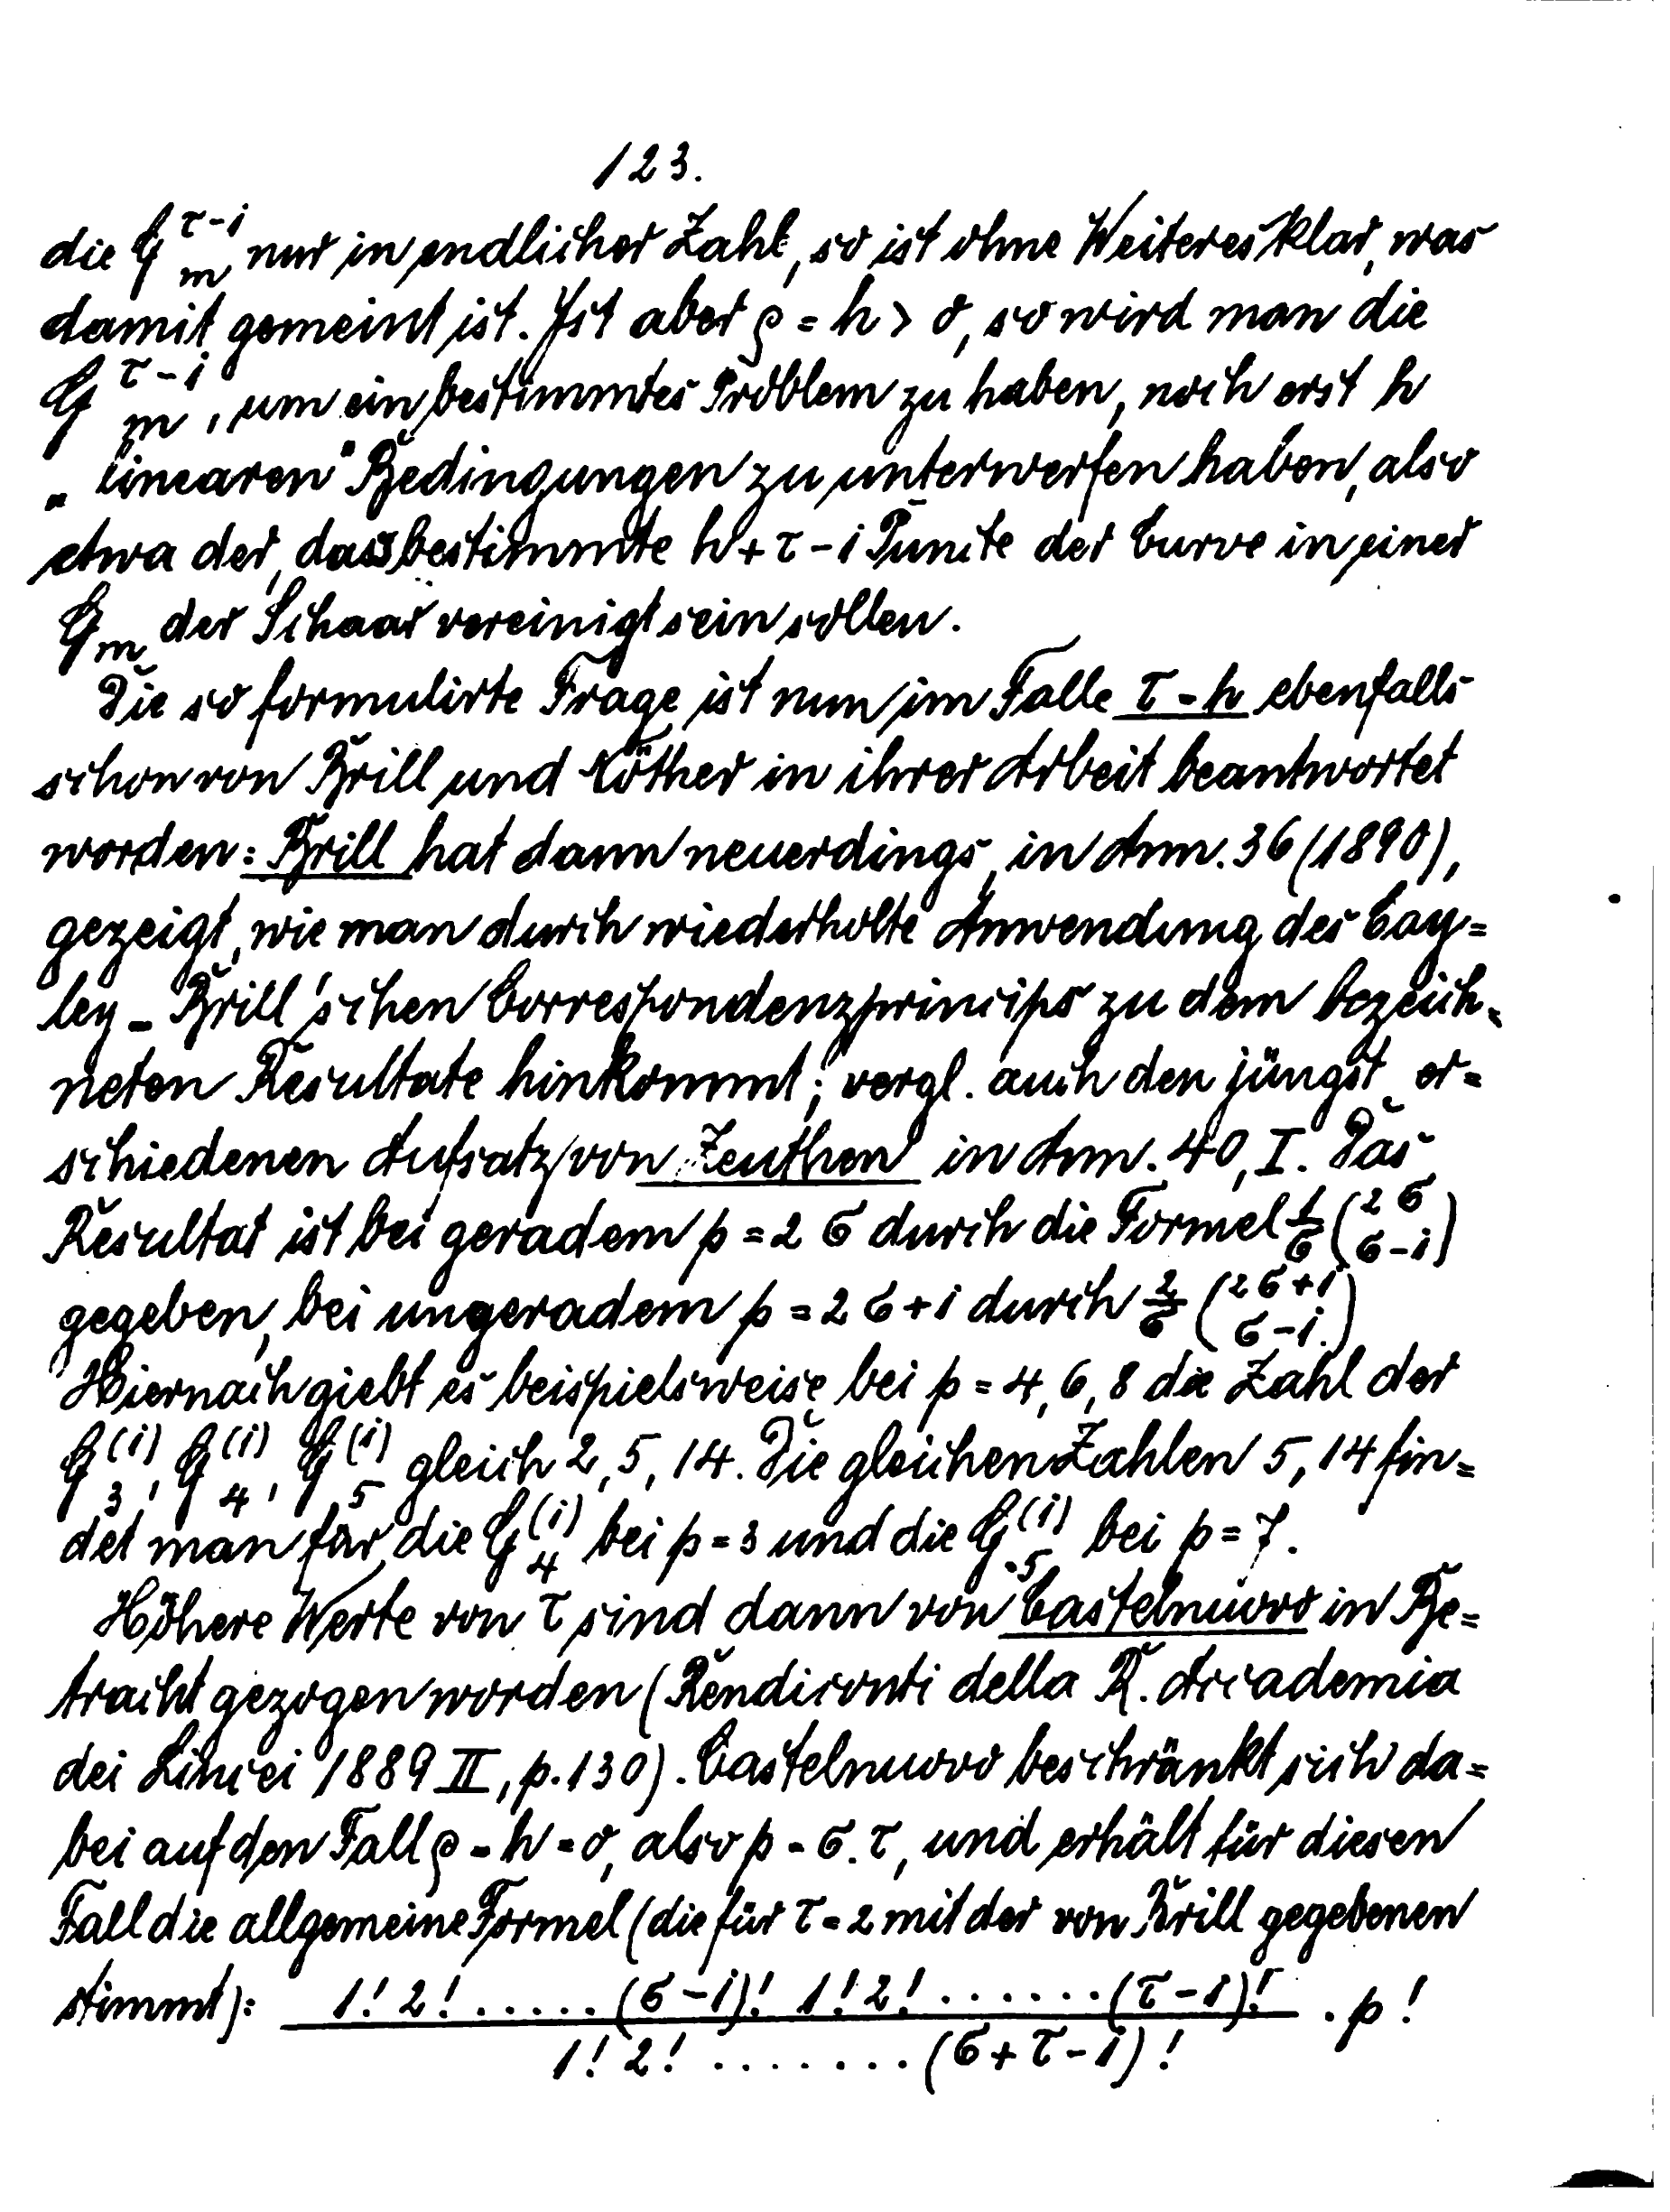 123.
die G_m^{τ-1} nur in endlicher Zahl, so ist ohne Weiteres klar, was
damit gemeint ist. Ist aber ρ = h > 0, so wird man die
G_m^{τ-1}, um ein bestimmtes Problem zu haben, noch erst h
„linearen" Bedingungen zu unterwerfen haben, also
etwa der, dass bestimmte h + τ - 1 Puncte der Curve in einer
G_m der Schaar vereinigt sein sollen.
Die so formulirte Frage ist nun im Falle τ = h ebenfalls
schon von Brill und Nöther in ihrer Arbeit beantwortet
worden: Brill hat dann neuerdings, in Ann. 36 (1890),
gezeigt, wie man durch wiederholte Anwendung des Cay=
ley-Brill'schen Correspondenzprincips zu dem bezeich-
neten Resultate hinkommt; vergl. auch den jüngst er=
schiedenen Aufsatz von Zeuthen in Ann. 40, I. Das
Resultat ist bei geradem p = 2σ durch die Formel \frac{1}{σ} \binom{2σ}{σ-1}
gegeben, bei ungeradem p = 2σ+1 durch \frac{2}{σ} \binom{2σ+1}{σ-1}
Hiernach giebt es beispielsweise bei p = 4, 6, 8 die Zahl der
G_3^{(1)}, G_4^{(1)}, G_5^{(1)} gleich 2, 5, 14. Die gleichen Zahlen 5, 14 fin=
det man für die G_4^{(1)} bei p = 3 und die G_5^{(1)} bei p = 7.
Höhere Werte von τ sind dann von Castelnuovo in Be=
tracht gezogen worden (Rendiconti della R. Accademia
dei Lincei 1889 II, p. 130). Castelnuovo beschränkt sich da=
bei auf den Fall ρ = h = 0, also p = σ.τ, und erhält für diesen
Fall die allgemeine Formel (die für τ = 2 mit der von Brill gegebenen
stimmt): \frac{1! 2! ..... (σ-1)! 1! 2! ....... (τ-1)!}{1! 2! ........ (σ+τ-1)!} . p!